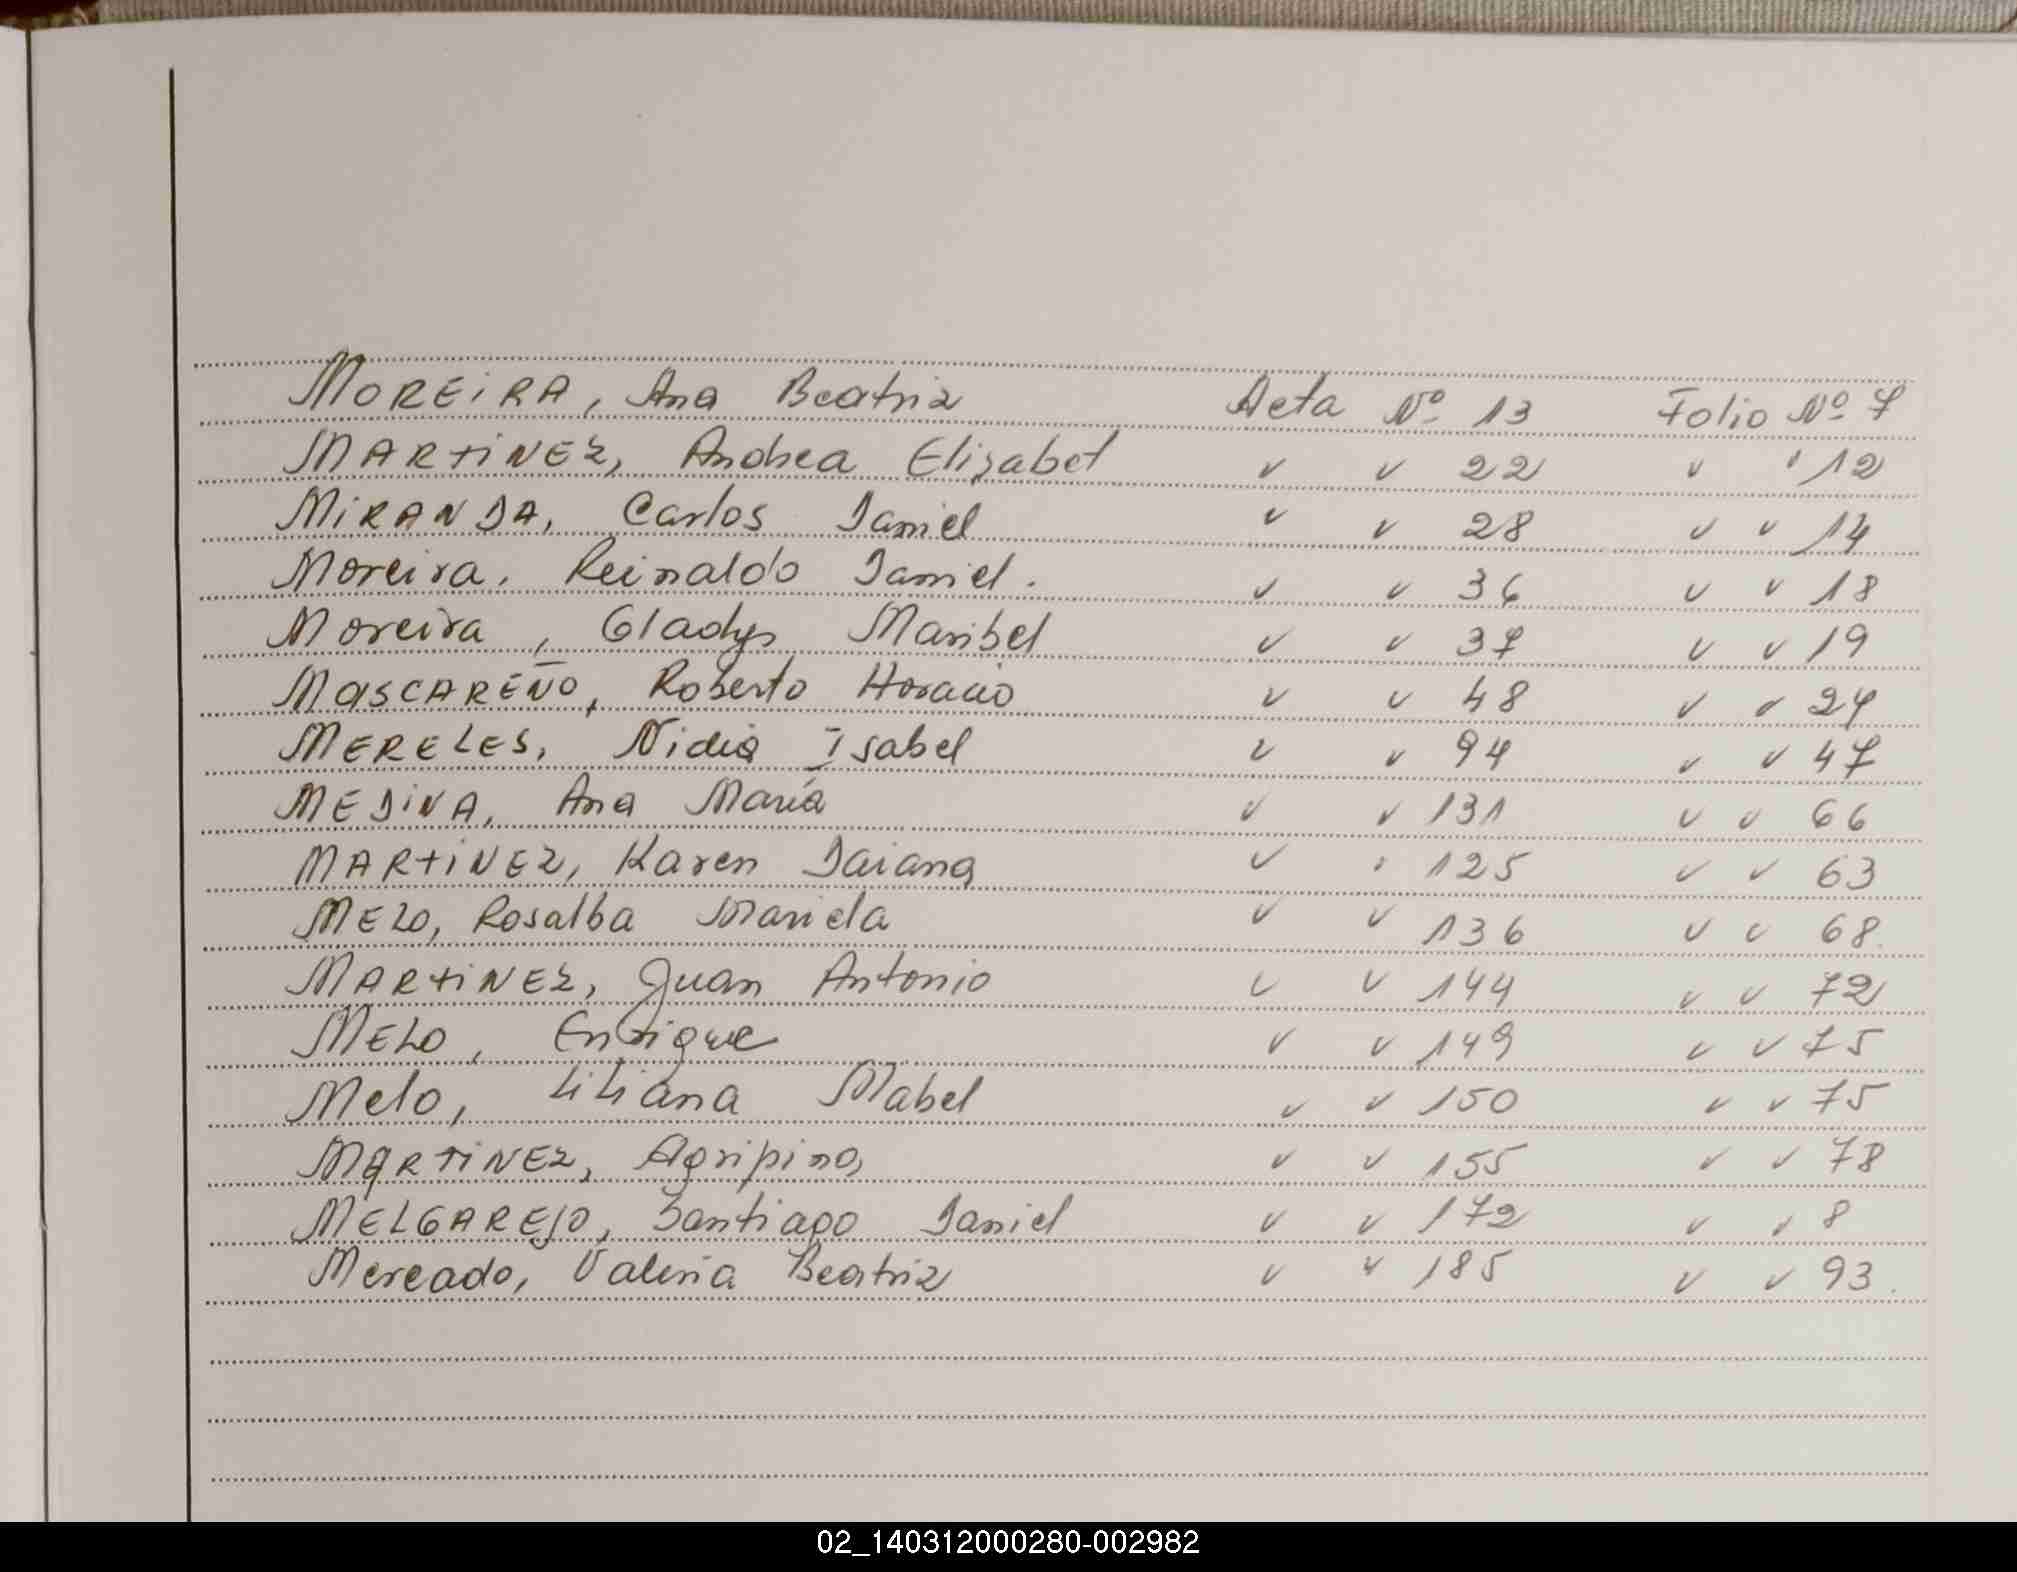 MOREIRA, Ana Beatriz Acta Nº 13 Folio Nº 7
MARTINEZ, Andrea Elisabet ✓ ✓ 22 ✓ ✓ 12
MIRANDA, Carlos Daniel ✓ ✓ 28 ✓ ✓ 14
Moreira, Reinaldo Daniel. ✓ ✓ 36 ✓ ✓ 18
Moreira, Gladys Maribel ✓ ✓ 37 ✓ ✓ 19
MASCAREÑO, Roberto Horacio ✓ ✓ 48 ✓ ✓ 24
MERELES, Nidia Isabel ✓ ✓ 94 ✓ ✓ 47
MEDINA, Ana María ✓ ✓ 131 ✓ ✓ 66
MARTINEZ, Karen Daiana ✓ ✓ 125 ✓ ✓ 63
MELO, Rosalba Mariela ✓ ✓ 136 ✓ ✓ 68.
MARTINEZ, Juan Antonio ✓ ✓ 144 ✓ ✓ 72
MELO, Enrique ✓ ✓ 149 ✓ ✓ 75
Melo, Liliana Mabel ✓ ✓ 150 ✓ ✓ 75
MARTINEZ, Agripina ✓ ✓ 155 ✓ ✓ 78
MELGAREJO, Santiago Daniel ✓ ✓ 172 ✓ ✓ 8
Mercado, Valeria Beatriz ✓ ✓ 185 ✓ ✓ 93.
02_140312000280-002982